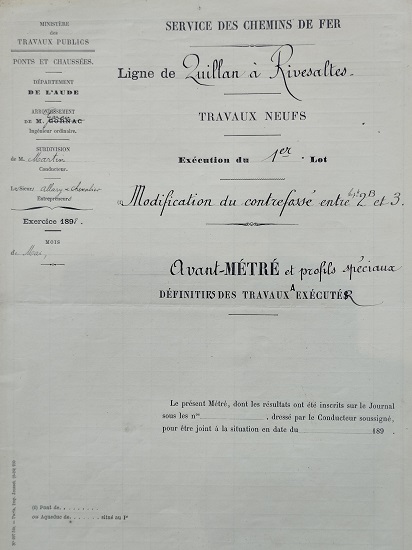 MINISTÈRE
des
TRAVAUX PUBLICS
PONTS ET CHAUSSÉES
DÉPARTEMENT
DE L'AUDE
ARRONDISSEMENT
DE M. GORNAC
Ingénieur ordinaire.
SUBDIVISION
de M. Martin
Conducteur.
Les Sieurs Allary & Chevalier
Entrepreneurs
Exercice 1898.
MOIS
de Mai
SERVICE DES CHEMINS DE FER
Ligne de Quillan à Rivesaltes.
TRAVAUX NEUFS
Exécution du 1er Lot
Modification du contrefossé entre 2B et 3.
Avant-MÉTRÉ et profils spéciaux
DÉFINITIFS DES TRAVAUX A EXÉCUTER
Le présent Métré, dont les résultats ont été inscrits sur le Journal
sous les nos , dressé par le Conducteur soussigné,
pour être joint à la situation en date du 189 .
(1) Pont de
ou Aqueduc de situé au Pt